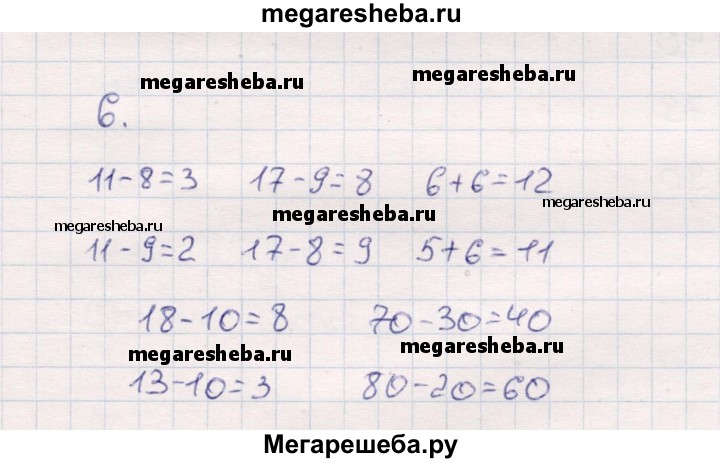 megaresheba.ru
megaresheba.ru megaresheba.ru
6.
11-8=3 17-9=8 6+6=12
megaresheba.ru megaresheba.ru megaresheba.ru
11-9=2 17-8=9 5+6=11
18-10=8 70-30=40
megaresheba.ru megaresheba.ru
13-10=3 80-20=60
Мегарешеба.ру